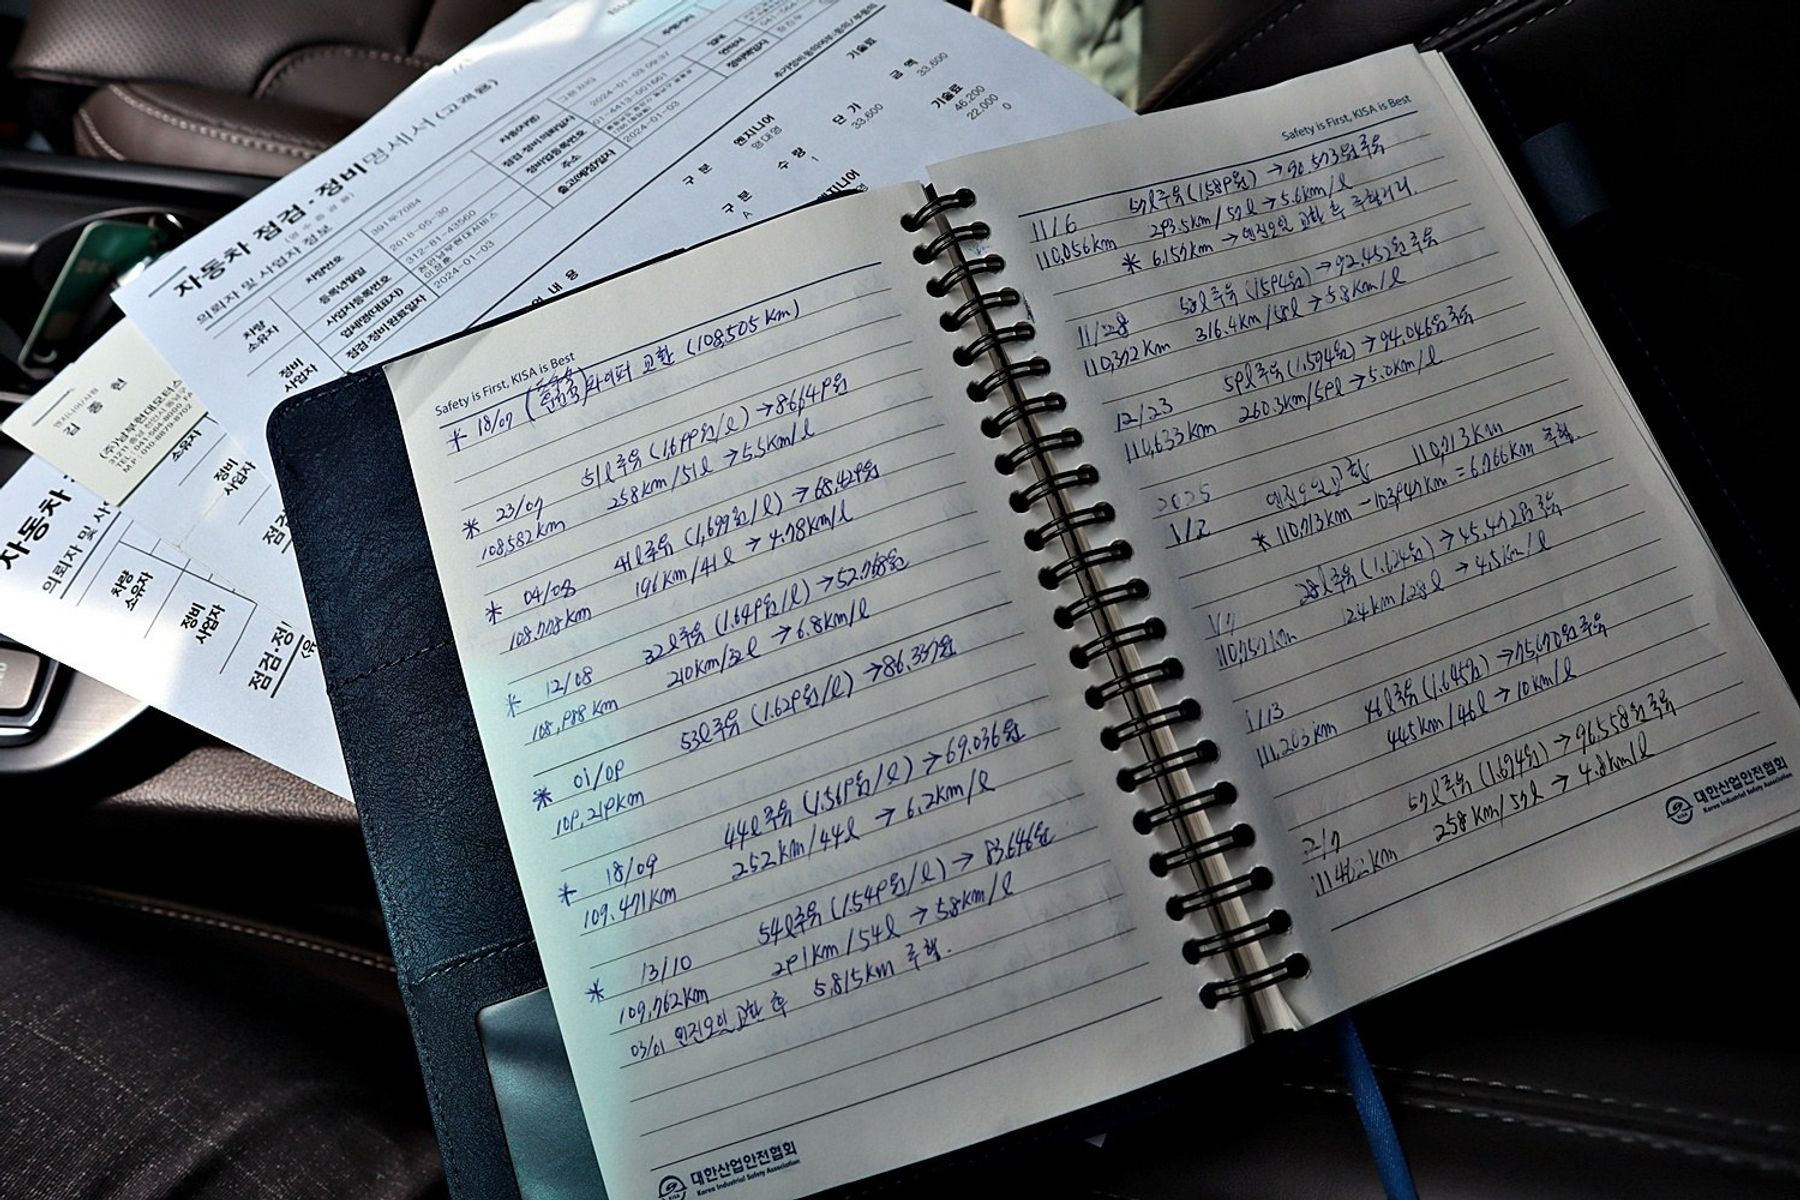 자동차 점검·정비명세서 (고객용)
의뢰자 및 사업자 정보
차량
소유자
차량번호
391두7084
등록년월일
2018-05-30
정비
사업자
사업자등록번호
312-81-43560
업체명(대표자)
점검·정비완료일자
2024-01-03
차종(차명)
점검·정비 의뢰일자
2024-01-03 09:37
정비업등록번호
주소
출고(예정)일자
2024-01-03
구분
엔지니어
수량
1
단가
33,600
금액
33,600
기술료
기술료
46,200
22,000
0
김종현
(주)남부현대모터스
자동차
의뢰자 및 사
차량
소유자
정비
사업자
점검·정
Safety is First, KISA is Best
* 18/07 와이퍼 교환 (108,505 km)
* 23/07 51ℓ주유 (1,699원/ℓ) → 86,649원
108,582km 258km/51ℓ → 5.5km/ℓ
* 04/08 41ℓ주유 (1,699원/ℓ) → 68,429원
108,778km 196km/41ℓ → 4.78km/ℓ
* 12/08 32ℓ주유 (1,649원/ℓ) → 52,768원
108,988km 210km/32ℓ → 6.8km/ℓ
* 01/09 53ℓ주유 (1,629원/ℓ) → 86,337원
109,219km
* 18/09 44ℓ주유 (1,569원/ℓ) → 69,036원
109,471km 252km/44ℓ → 6.2km/ℓ
* 13/10 54ℓ주유 (1,549원/ℓ) → 83,646원
109,762km 291km/54ℓ → 5.8km/ℓ
03/01 엔진오일 교환 후 5,815km 주행.
대한산업안전협회
Korea Industrial Safety Association
Safety is First, KISA is Best
11/6 57ℓ주유 (1,589원) → 90,573원 주유
110,056km 293.5km/57ℓ → 5.6km/ℓ
* 6,157km → 엔진오일 교환 후 주행거리.
11/28 58ℓ주유 (1594원) → 92,452원 주유
110,372km 316.4km/58ℓ → 5.8km/ℓ
12/23 59ℓ주유 (1,594원) → 94,046원 주유
110,633km 260.3km/59ℓ → 5.0km/ℓ
2025 엔진오일 교환 110,713km
1/2 * 110,713km - 103,947km = 6,766km 주행.
1/7 28ℓ주유 (1,624원) → 45,472원 주유
110,757km 124km/28ℓ → 4.5km/ℓ
1/13 46ℓ주유 (1,645원) → 75,670원 주유
111,203km 445km/46ℓ → 10km/ℓ
2/7 57ℓ주유 (1,694원) → 96,558원 주유
258km/57ℓ → 4.8km/ℓ
대한산업안전협회
Korea Industrial Safety Association